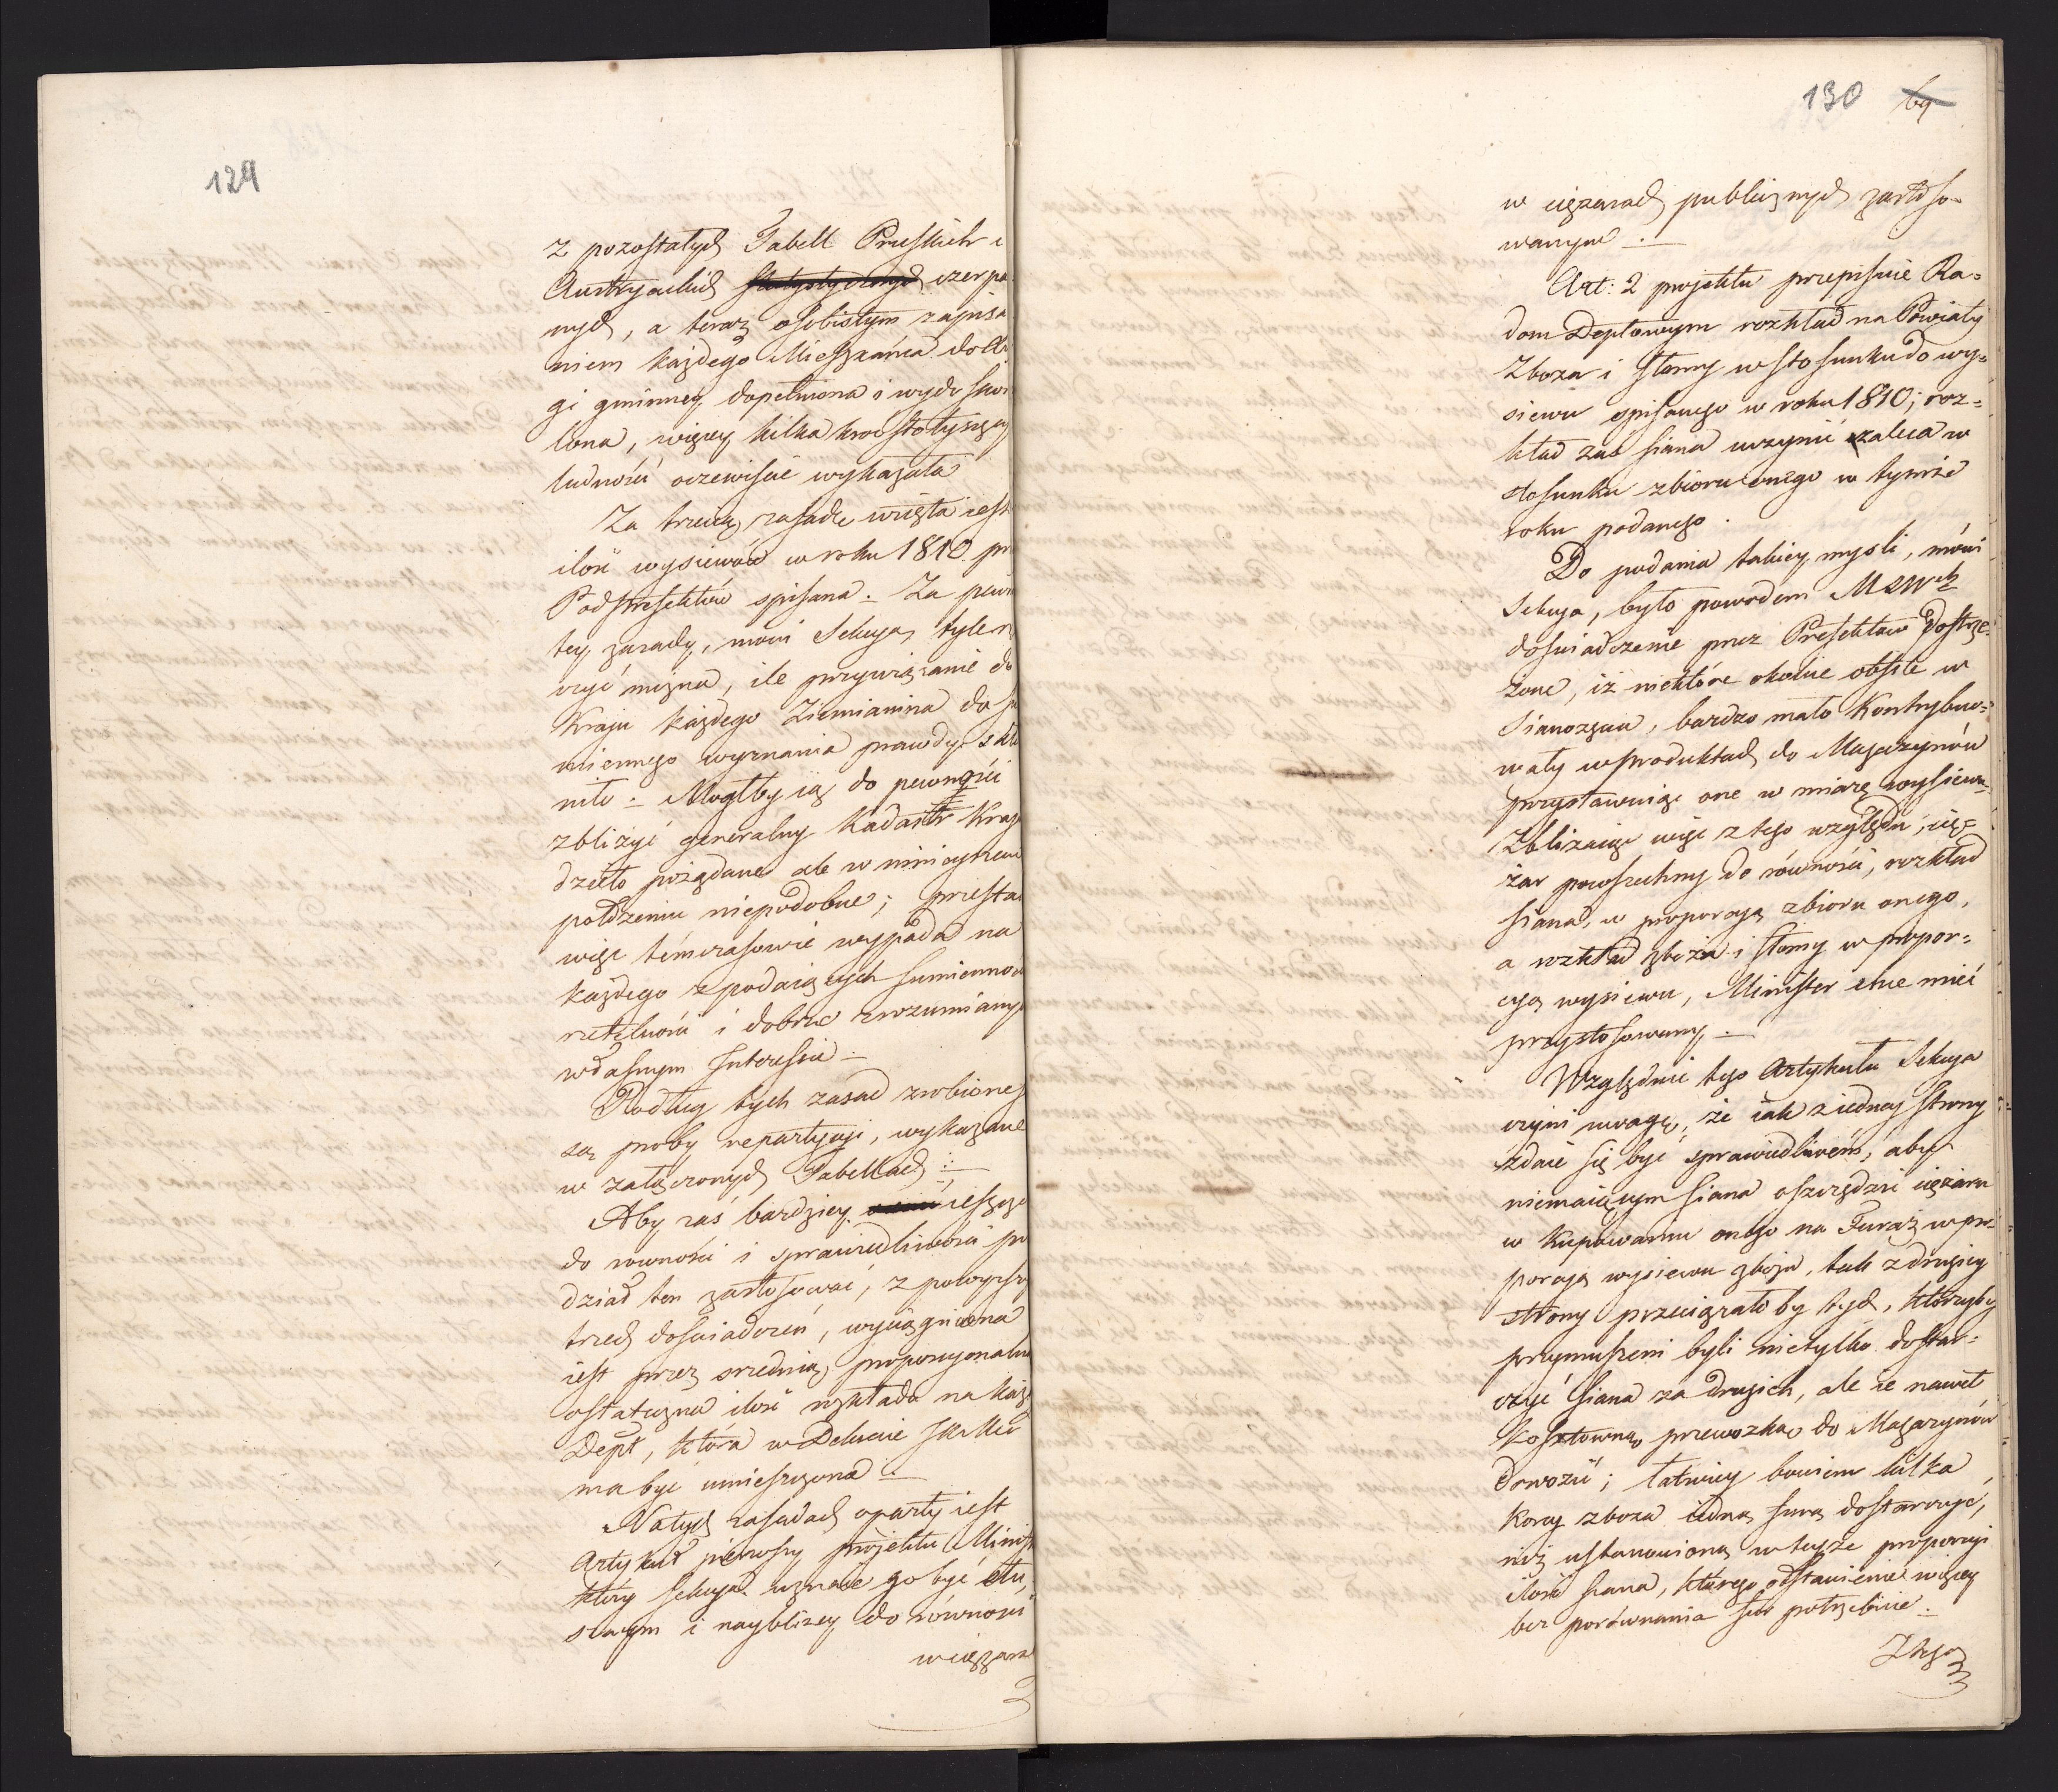 129
z pozostałych Tabell Pruskich i
Austryackich statystycznych czerpa
nych, a teraz osobistym zapisa
niem każdego Mieszkańca do Xi
gi gminney dopełniona i wydosko
lona, więcey kilka kroć stotysięcy
ludności oczewiście wykazała
Za trzecią zasadę wzięta iest
ilość wysiewów w roku 1810 prz
Podprefektów spisana. Za pewn
tey zasady, mówi Sekcya, tyle rę
czyć można, ile przywiązanie do
Kraju każdego Ziemianina do su
miennego wyznania prawdy skło
niło. Mogłby ią do pewności
zbliżyć generalny Kadastr Kraju
dzieło pożądane ale w ninieyszem
położeniu niepodobne; przestać
więc tymczasowie wypada na
każdego z podaiących sumienności
rzetelności i dobrze zrozumianym
własnym Interessie.
Podług tych zasad zrobione
są proby repartycyi, wykazane
w załączonych Tabellach.
Aby zaś bardziey ieszcze
do rowności i sprawiedliwości po
dział ten zastosować, z powyższy
trzech doświadczeń, wyciągniona
iest przez srzednią proporcyonalną
ostateczna ilość rozkładu na każd
Dept, która w Dekrecie JKMci
ma być umieszczona.
Natych zasadach oparty iest
Artykuł pierwszy projektu Minist
który Sekcya uznaie go być słu
sznym i naybliżey do równości
w ciężarach
130 69
w ciężarach publicznych zastoso-
wanym.
Art: 2 projektu przepisuie Ra-
dom Deptowym rozkład na Powiaty
Zboża i słomy w stosunku do wy-
siewu opisanego w roku 1810; roz-
kład zaś siana uczynić zaleca w
stosunku zbioru onego w tymże
roku podanego.
Do podania takiey mysli, mówi
Sekcya, było powodem MSWch
doświadczenie przez Prefektów dostrze-
żone, iż niektóre okolice obfite w
Sianożęcia, bardzo mało kontrybuo-
wały w produktach do Magazynów
przystawuiąc one w miarę wysiewu.
Zbliżaiąc więc z tego względu, cię-
żar powszechny do równości, rozkład
siana, w proporcyą zbioru onego,
a rozkład zboża i słomy w propor-
cyą wysiewu, Minister chce mieć
przystosowany.
Względnie tego Artykułu Sekcya
czyni uwagę, że iak z iedney strony
zdaie się być sprawiedliwém, aby
niemaiącym siana oszczędzić ciężaru
w kupowaniu onego na Furaż w pro-
porcyą wysiewu zboża, tak z drugiey
strony przeciążało by tych, którzyby
przymuszeni byli nietylko dostar-
czyć siana za drugich, ale ie nawet
kosztowną przewozką do Magazynów
dowozić; łatwiey bowiem kilka
korcy zboża iedną furą dostarczyć,
niż ustanowioną w teyże proporcyi
ilość siana, którego odstawienie więcey
bez porównania fur potrzebuie.
Zkąd